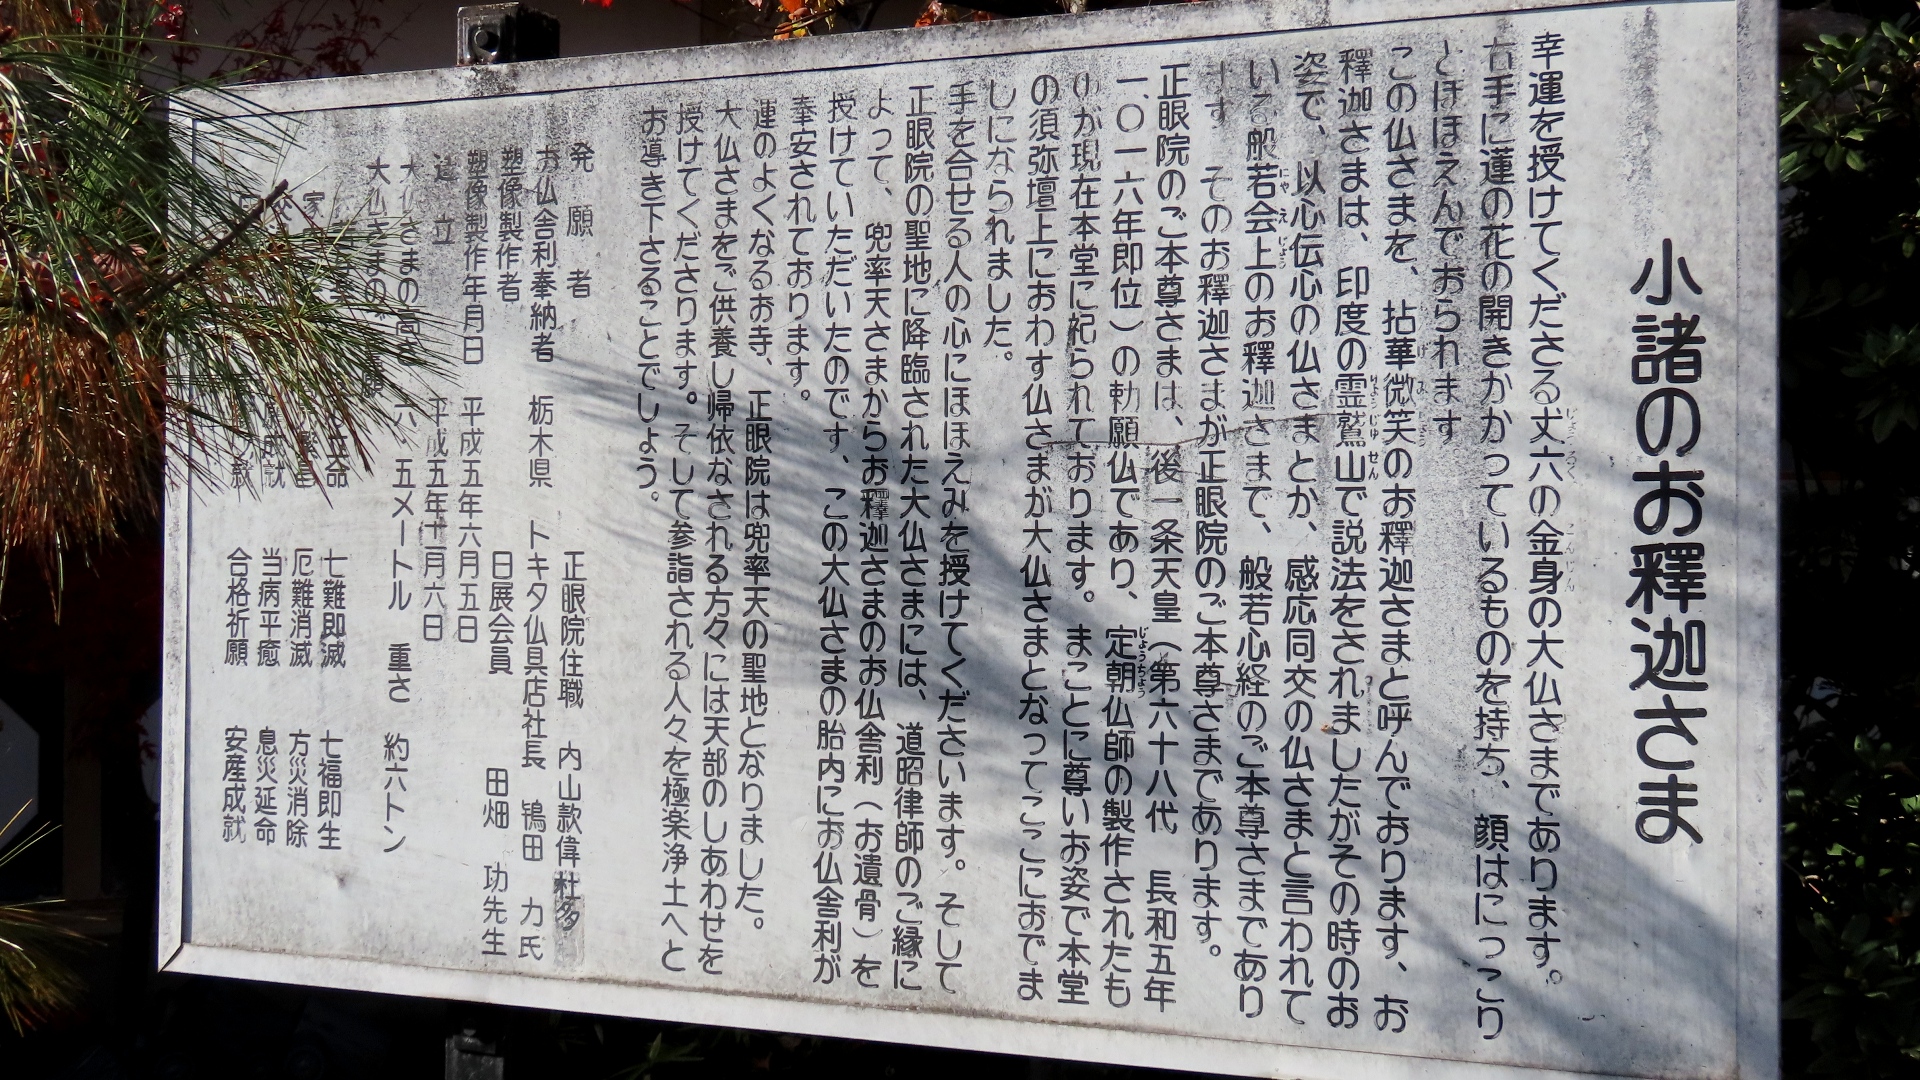 小諸のお釋迦さま
幸運を授けてくださる丈六の金身の大仏さまであります。
じょうろく
こんじん
右手に蓮の花の開きかかっているものを持ち、顔はにっこり
とほほえんでおられます
この仏さまを、拈華微笑のお釋迦さまと呼んでおります、お
げ
み
しょう
釋迦さまは、印度の霊鷲山で説法をされましたがその時のお
りょうじゅせん
姿で、以心伝心の仏さまとか、感応同交の仏さまと言われて
いる般若会上のお釋迦さまで、般若心経のご本尊さまであり
にゃ
え
じょう
ます　そのお釋迦さまが正眼院のご本尊さまであります。
正眼院のご本尊さまは、後一条天皇（第六十八代　長和五年
一、〇一六年即位）の勅願仏であり、定朝仏師の製作されたも
じょうちょう
のが現在本堂に祀られております。まことに尊いお姿で本堂
の須弥壇上におわす仏さまが大仏さまとなってここにおでま
しになられました。
手を合せる人の心にほほえみを授けてくださいます。そして
正眼院の聖地に降臨された大仏さまには、道昭律師のご縁に
よって、兜率天さまからお釋迦さまのお仏舎利（お遺骨）を
授けていただいたのです、この大仏さまの胎内にお仏舎利が
奉安されております。
運のよくなるお寺、正眼院は兜率天の聖地となりました。
大仏さまをご供養し帰依なされる方々には天部のしあわせを
授けてくださります。そして参詣される人々を極楽浄土へと
お導き下さることでしょう。
発願者　正眼院住職　内山款偉杜多
お仏舎利奉納者　栃木県　トキタ仏具店社長　鴇田　力氏
塑像製作者　日展会員　田畑　功先生
塑像製作年月日　平成五年六月五日
建立　平成五年十月六日
大仏さまの高さ　六・五メートル　重さ　約六トン
大仏さまの　願
立命　七難即滅　七福即生
家　繁昌　厄難消滅　方災消除
願成就　当病平癒　息災延命
就　合格祈願　安産成就